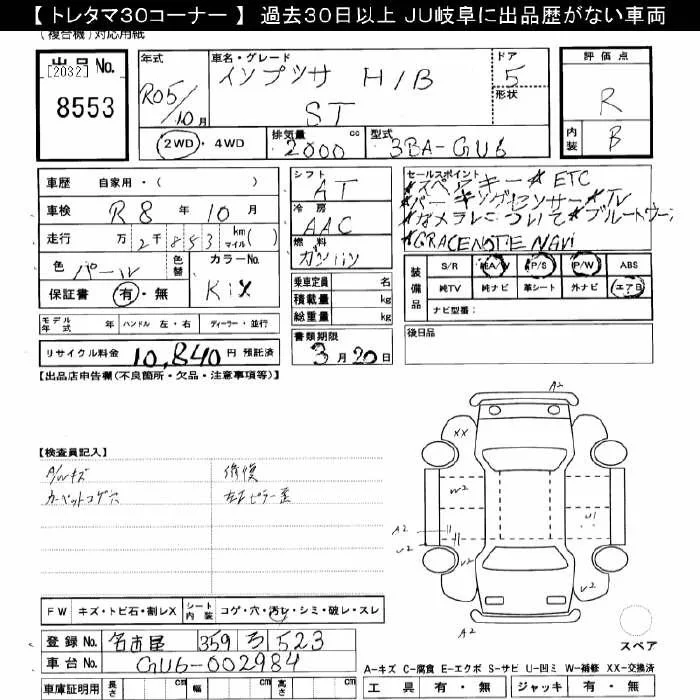 【 トレタマ30コーナー 】 過去30日以上 JU岐阜に出品歴がない車両
(複合機)対応用紙
出品 No.
[2032]
8553
年式
R05/10月
車名・グレード
インプッサ H/B
ST
ドア
5
形状
評価点
R
内装
B
2WD ・ 4WD
排気量 cc
2000
型式
3BA-GU6
車歴 自家用・( )
車検 R8 年 10 月
走行 万 2千853 km マイル( )
色 パール 色替
カラーNo.
K1X
保証書 有・無
シフト
AT
冷房
AAC
燃料
ガソリン
乗車定員 名
積載量 kg
総重量 kg
セールスポイント
*スペアキー*ETC
*パーキングセンサー*TV
*カメラについて*ブルートゥー
*GRACENOTE NAVi
装備品
S/R 純A/W P/S P/W ABS
純TV 純ナビ 革シート 外ナビ エアB
ナビ型番:
モデル年式 年 ハンドル 左・右 ディーラー・並行
書類期限
3月20日
後日品
リサイクル料金 10,840 円 預託済
【出品店申告欄(不良箇所・欠品・注意事項等)】
【検査員記入】
A/Wキズ
カーペットコゲ穴
修復
A2
XX
W2
U1
A2
U2
W2
W2
A2
スペア
FW キズ・トビ石・割レX シート内装 コゲ・穴・汚レ・シミ・破レ・スレ
登録 No. 名古屋 359 ろ 523
車台 No. GU6-002984
車庫証明用 長さ cm 幅 cm 高さ cm
A-キズ C-腐食 E-エクボ S-サビ U-凹ミ W-補修 XX-交換済
工具 有・無 ジャッキ 有・無